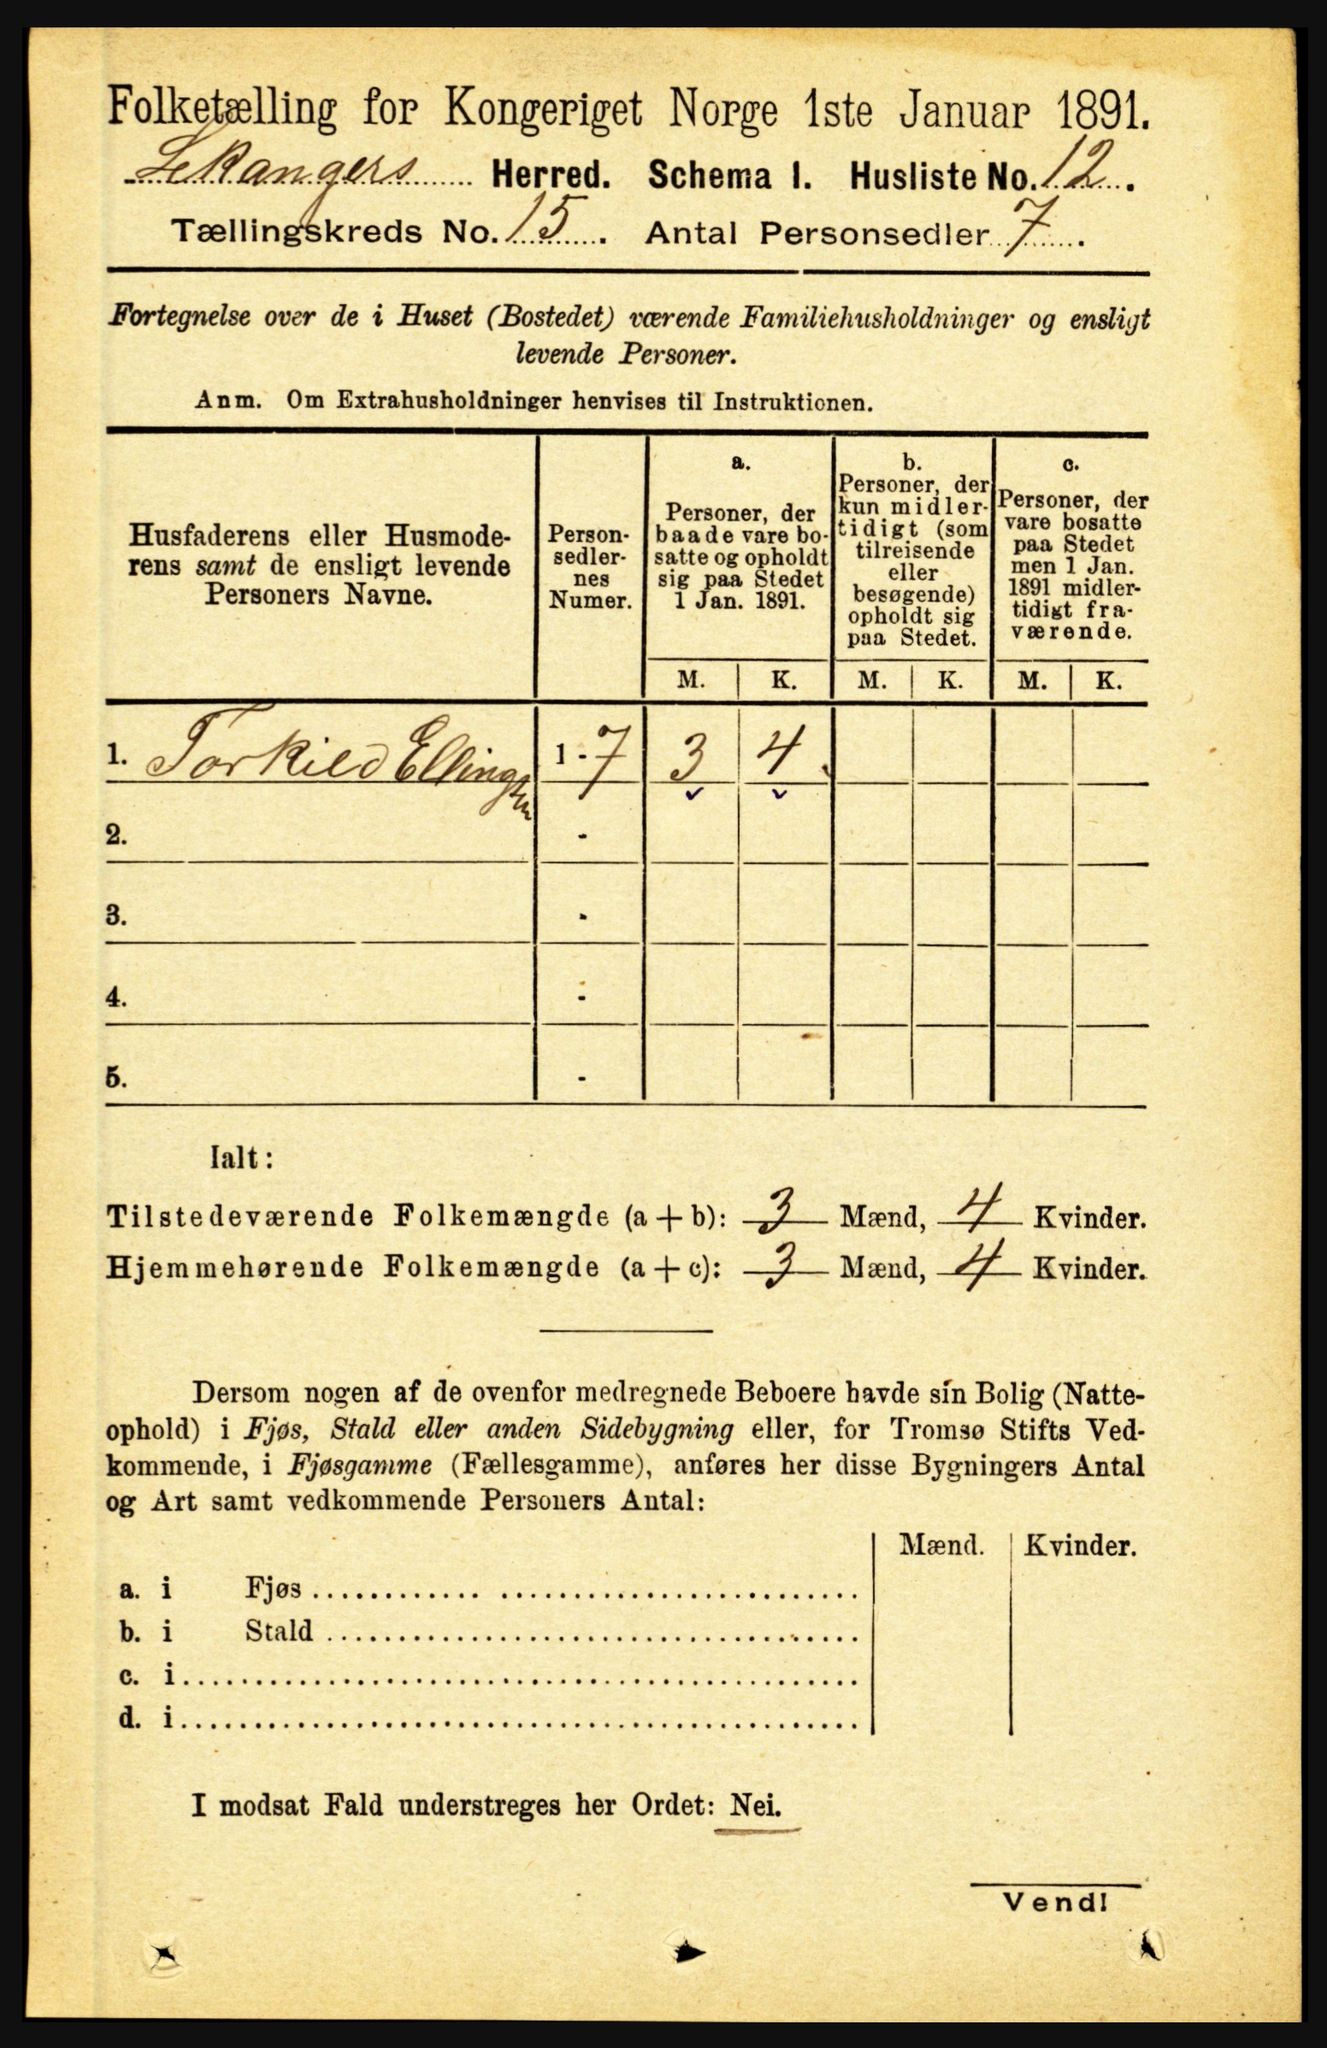 Folketælling for Kongeriget Norge 1ste Januar 1891.
Lekangers Herred. Schema I. Husliste No. 12.
Tællingskreds No. 15. Antal Personsedler 7.
Fortegnelse over de i Huset (Bostedet) værende Familiehusholdninger og ensligt
levende Personer.
Anm. Om Extrahusholdninger henvises til Instruktionen.
Husfaderens eller Husmode-
rens samt de ensligt levende
Personers Navne.
Person-
sedler-
nes
Numer.
a.
Personer, der
baade vare bo-
satte og opholdt
sig paa Stedet
1 Jan. 1891.
b.
Personer, der
kun midler-
tidigt (som
tilreisende
eller
besøgende)
opholdt sig
paa Stedet.
c.
Personer, der
vare bosatte
paa Stedet
men 1 Jan.
1891 midler-
tidigt fra-
værende.
M. K. M. K. M. K.
1. Torkild Ellingsen 1 - 7 3 4
2. -
3. -
4. -
5. -
Ialt:
Tilstedeværende Folkemængde (a + b): 3 Mænd, 4 Kvinder.
Hjemmehørende Folkemængde (a + c): 3 Mænd, 4 Kvinder.
Dersom nogen af de ovenfor medregnede Beboere havde sin Bolig (Natte-
ophold) i Fjøs, Stald eller anden Sidebygning eller, for Tromsø Stifts Ved-
kommende, i Fjøsgamme (Fællesgamme), anføres her disse Bygningers Antal
og Art samt vedkommende Personers Antal:
Mænd. Kvinder.
a. i Fjøs
b. i Stald
c. i
d. i
I modsat Fald understreges her Ordet: Nei.
Vend!